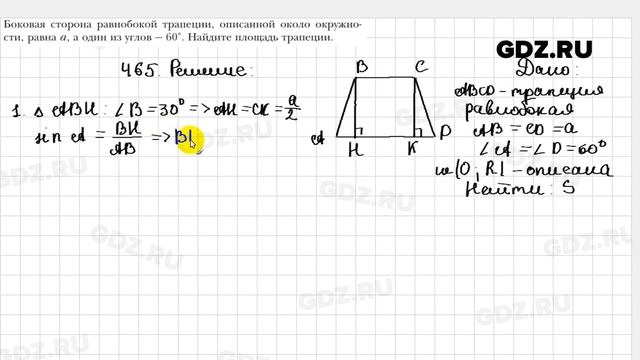 Боковая сторона равнобокой трапеции, описанной около окружно-
сти, равна a, а один из углов — 60°. Найдите площадь трапеции.
GDZ.RU
465. Решение:
Дано:
1. Δ ABH: ∠B = 30° => AH = CK = a/2
sin A = BH/AB => BH
B C
A H K D
ABCD - трапеция
равнобокая
AB = CD = a
∠A = ∠D = 60°
w(O; R) - описана
Найти: S
GDZ.RU
GDZ.RU
GDZ.RU
GDZ.RU